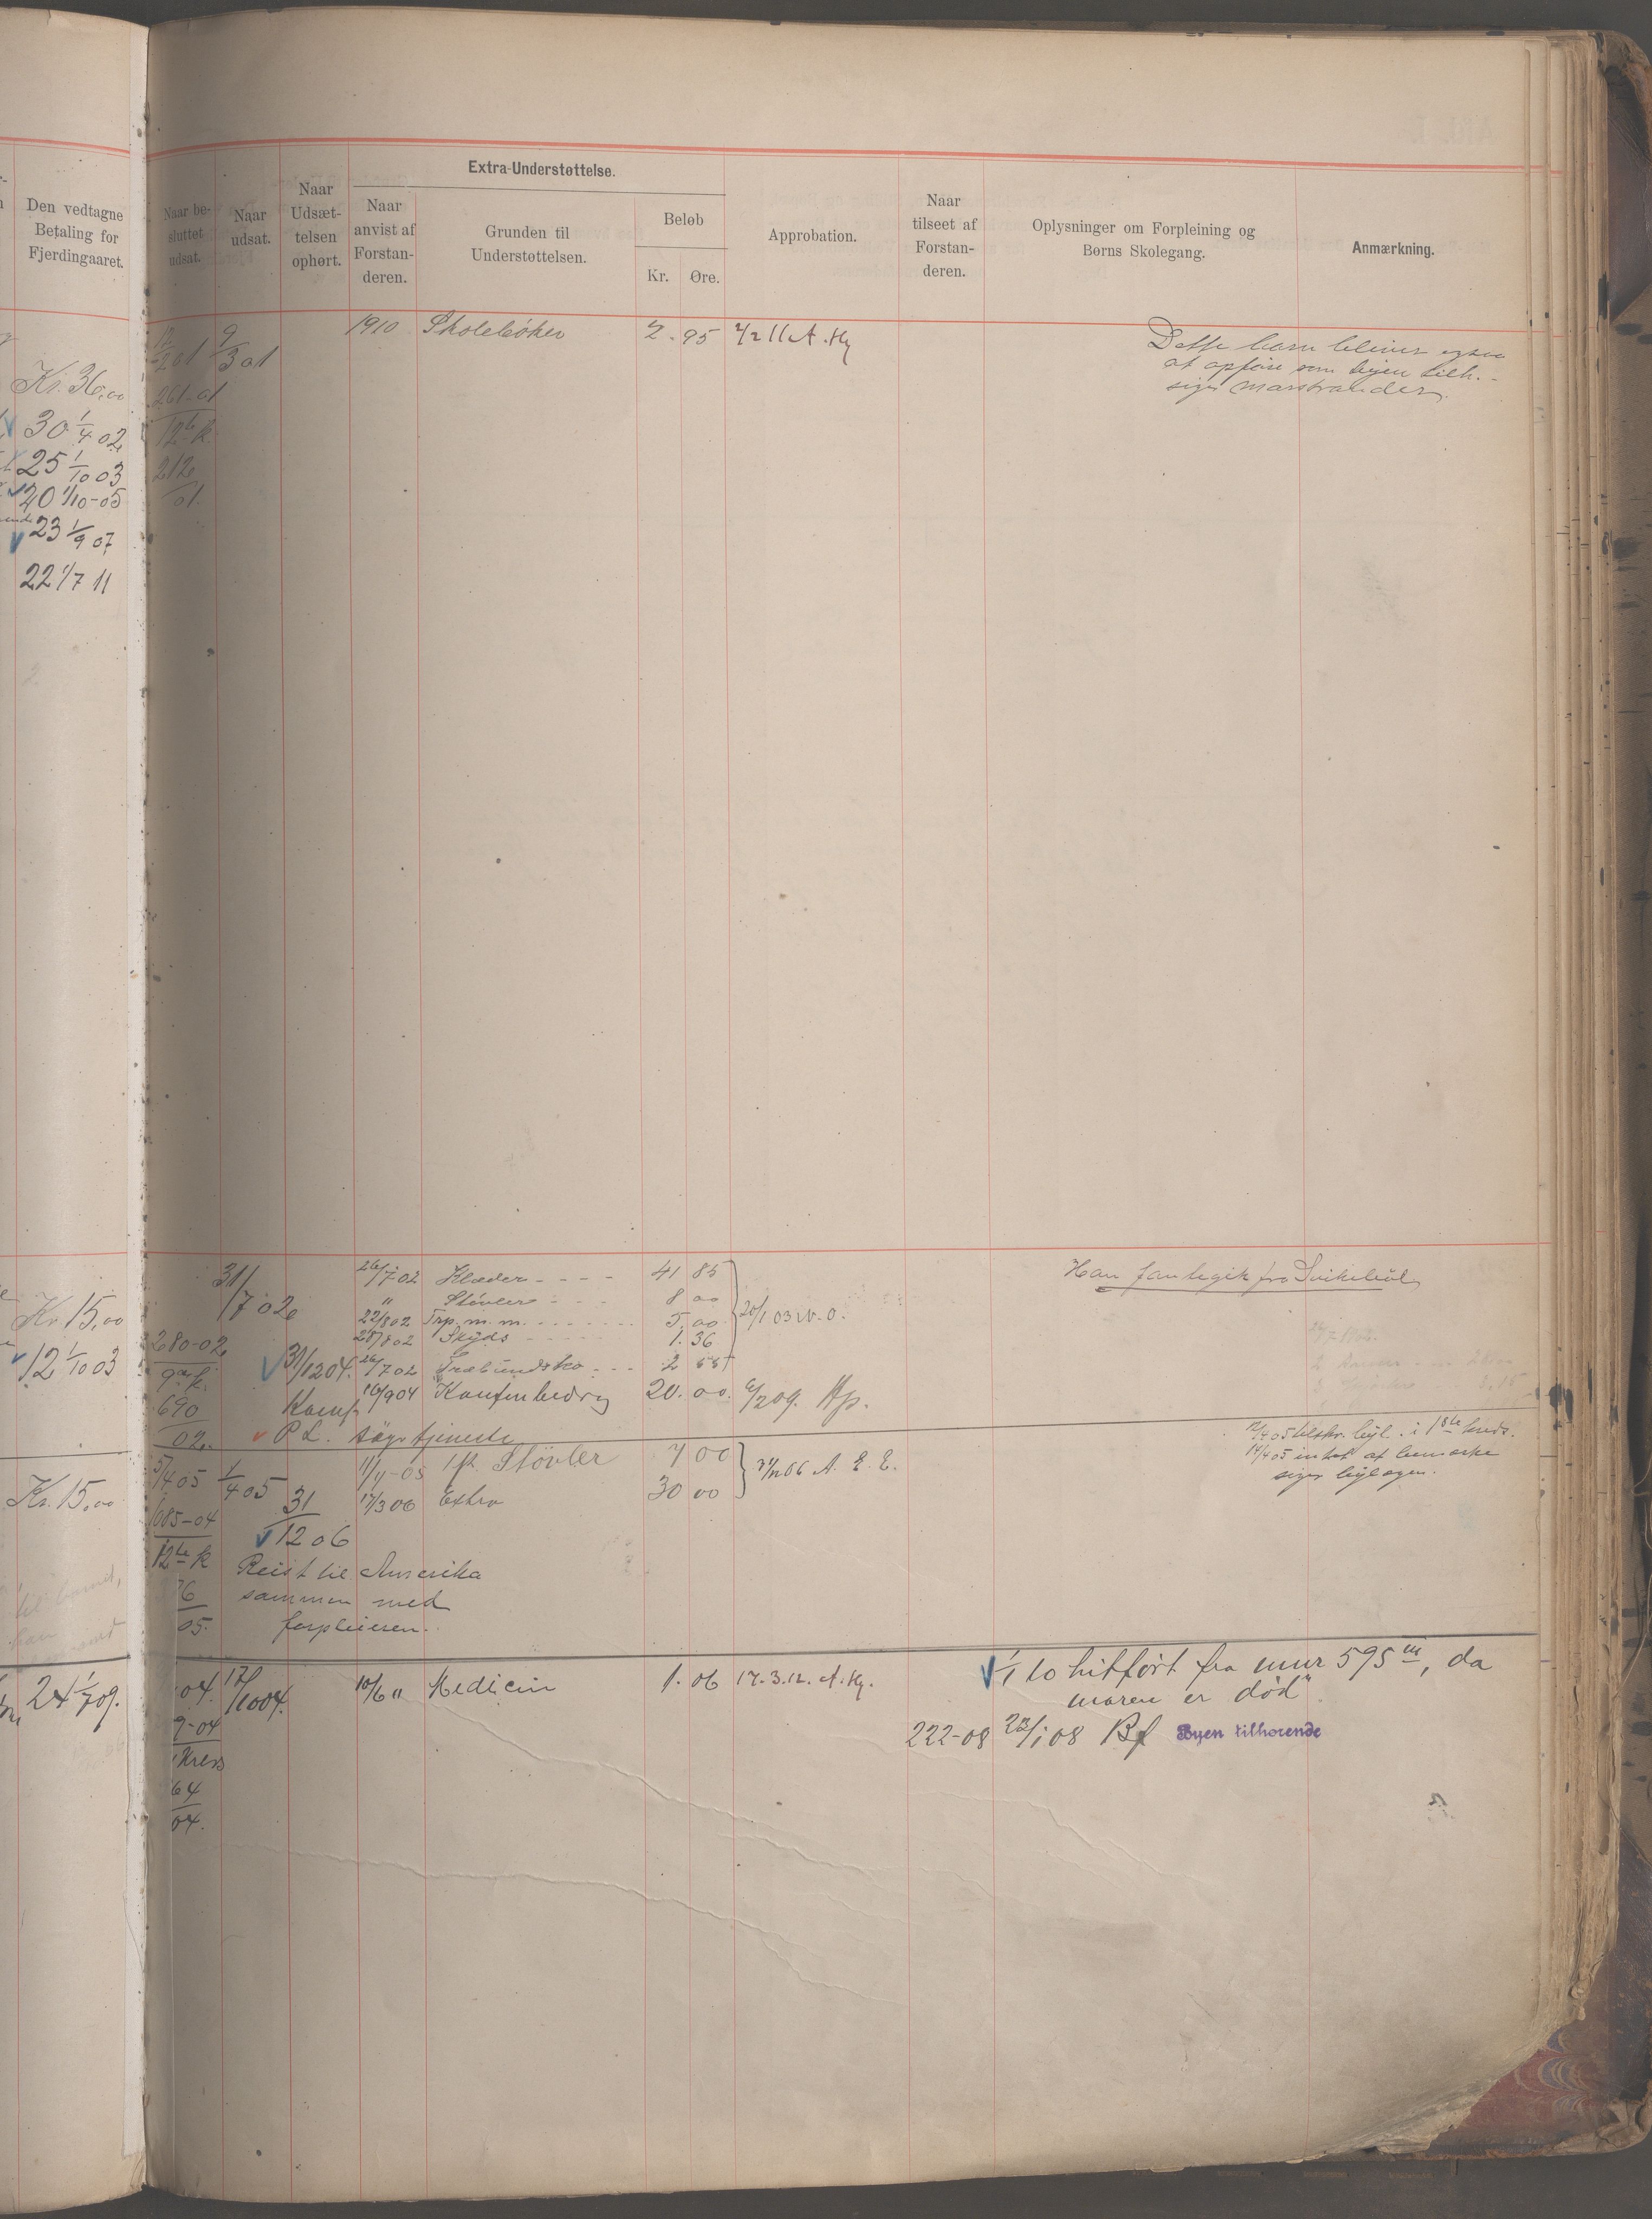 Den vedtagne
Betaling for
Fjerdingaaret.
Naar be-
sluttet
udsat.
Naar
udsat.
Naar
Udsæt-
telsen
ophørt.
Extra-Understøttelse.
Naar
anvist af
Forstan-
deren.
Grunden til
Understøttelsen.
Beløb
Kr. Øre.
Approbation.
Naar
tilseet af
Forstan-
deren.
Oplysninger om Forpleining og
Børns Skolegang.
Anmærkning.
Kr. 36,00
30 1/4 02
25 1/10 03
20 1/10-05
23 1/9 07
22 1/7 11
9/3 01
261-01
12te k.
212
01.
1910 Skolebøker 2.95 2/2 11 A. Hg
Dette barn bliver ogsaa
at opføre som byen tilh.-
siger Marstrander.
Kr. 15,00
12 1/10 03
31/7 02
280-02
9de k.
690
02.
31/12 04.
26/7 02 Klæder - - - - 41 85
" Støvler - - - 8 00
22/8 02 Trp. m. m. - - - - 5.00 20/1 03
28/8 02 Skyds - - - - - 1.36
26/7 02 Træbundsko - - - 2 55
16/9 04 20.00. 6/2 09. Ap.
P L. tjeneste
Han
Kr. 15,00
5/4 05 1/4 05
1085-04
12te k
76
05.
31
12 06
11/11-05 1 p. Støvler 7 00
17/3 06 Extra 30 00
A. E. E.
Reist til Amerika
sammen med
forpleieren.
12/4 05 tilskr. byl. i 1ste kreds.
14/4 05 intet at bemærke
siger bylægen.
24 1/7 09.
04. 17/10 04.
9-04
kreds
64
04.
10/6 11 Medicin 1.06 17.3.12. A. Hg.
1/1 10 hitført fra mmr 595 m, da
moren er død
222-08 22/1 08 Bf Byen tilhorende